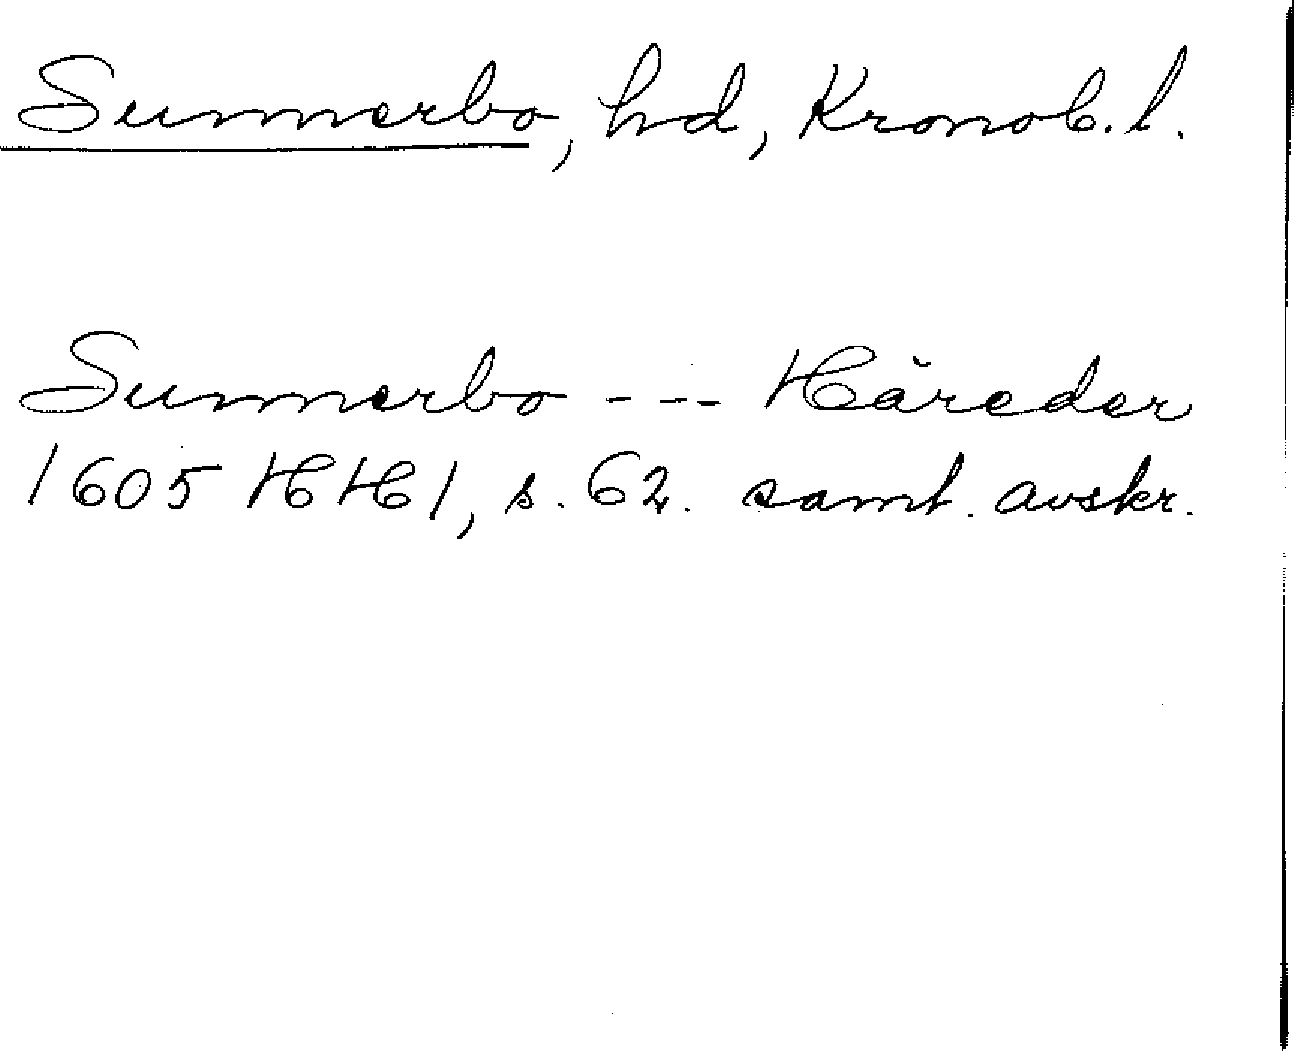 Sunnerbo, hd, Kronob. l.
Sunnerbo --- Häreder
1605 HH 1, s. 62. samt. avskr.